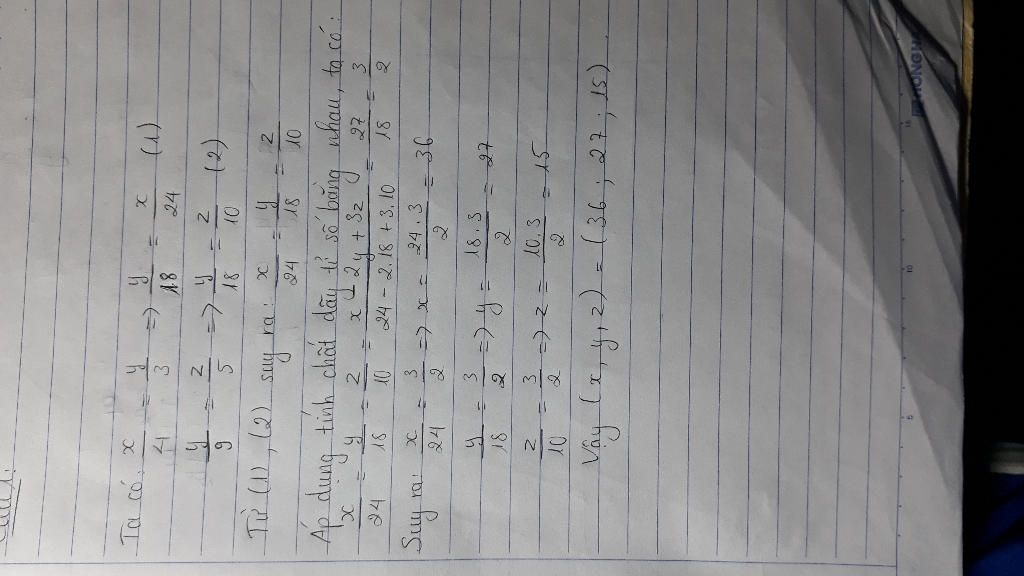 Ta có: x/4 = y/3 => y/18 = x/24 (1)
y/9 = z/5 => y/18 = z/10 (2)
Từ (1), (2) suy ra: x/24 = y/18 = z/10
Áp dụng tính chất dãy tỉ số bằng nhau, ta có:
x/24 = y/18 = z/10 = (x - 2y + 3z)/(24 - 2.18 + 3.10) = 27/18 = 3/2
Suy ra: x/24 = 3/2 => x = (24.3)/2 = 36
y/18 = 3/2 => y = (18.3)/2 = 27
z/10 = 3/2 => z = (10.3)/2 = 15
Vậy (x, y, z) = (36; 27; 15).